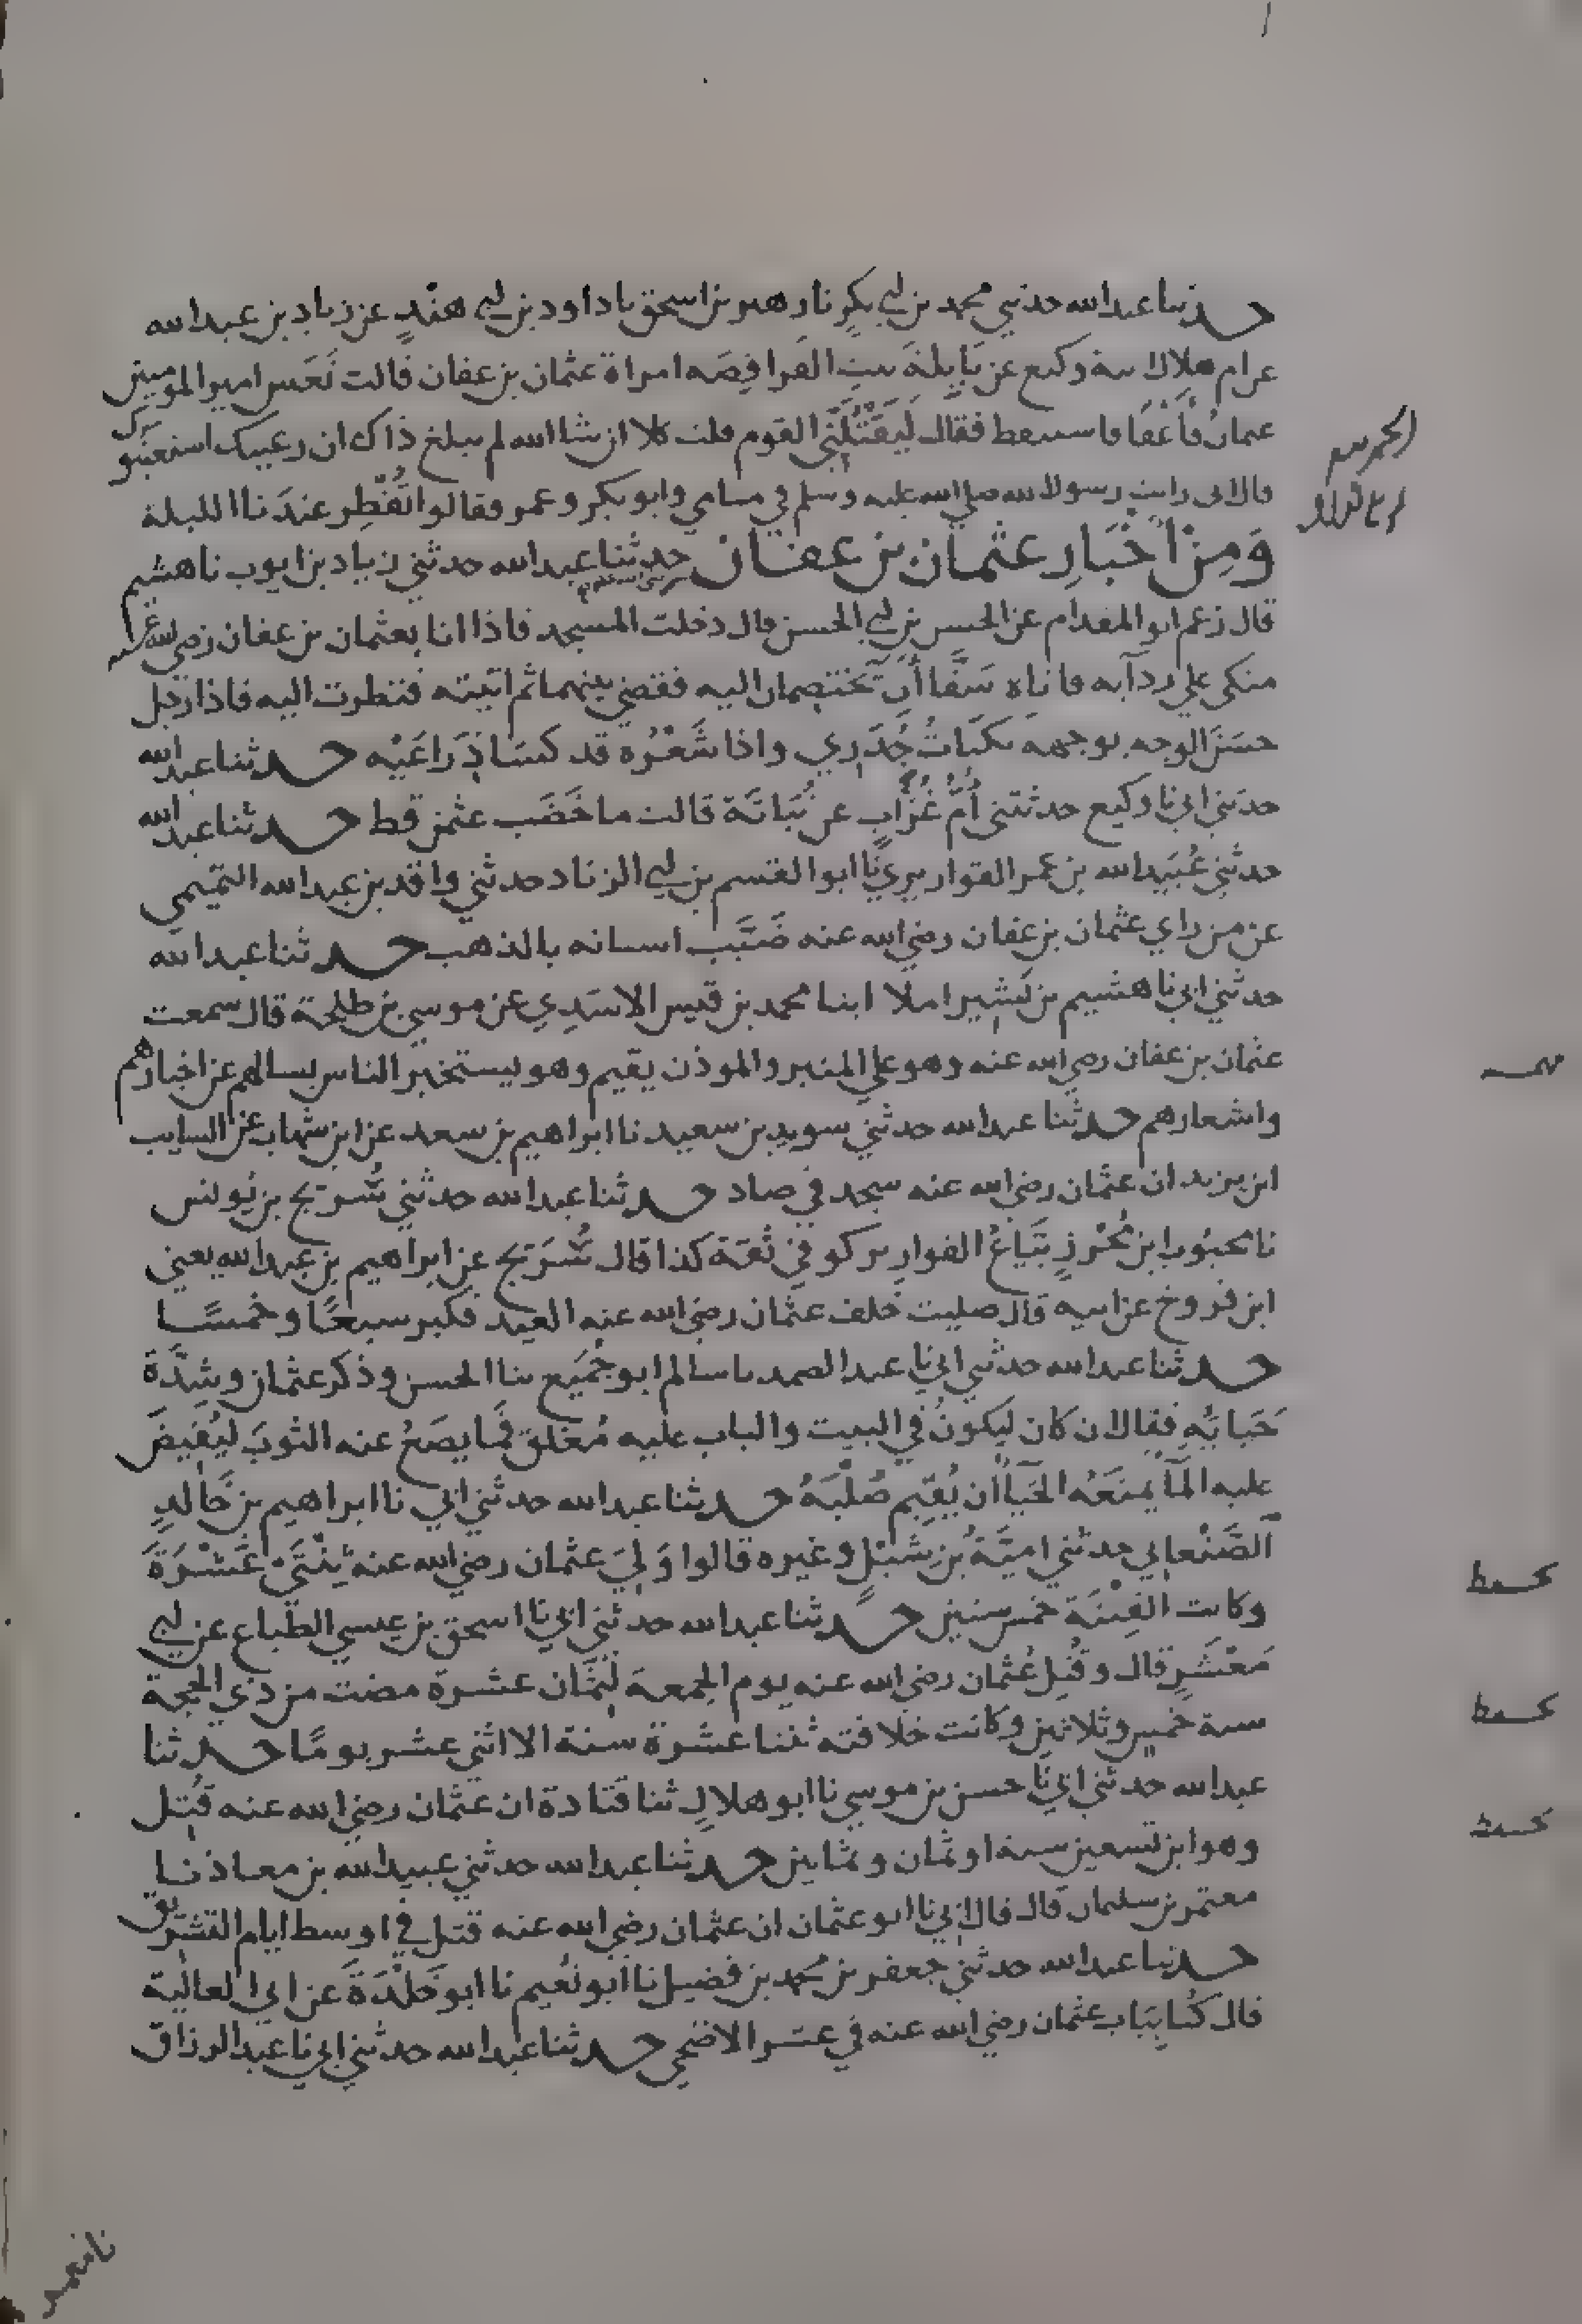 حدثنا عبدالله حدثني محمد بن ابي بكر نا زهير بن اسحق نا داود بن ابي هند عن زياد بن عبدالله
عن ام هلال ابنة وكيع عن نايلة بنت الفرافصه امراة عثمان بن عفان قالت نعس امير المومنين
عثمان فاغفا فاستيقظ فقال ليقتلنني القوم قلت كلا ان شا الله لم يبلغ ذاك ان رعيتك استعتبوك
قال اني رايت رسول الله صلي الله عليه وسلم في منامي وابو بكر وعمر فقالوا تفطر عندنا الليلة
ومن اخبار عثمان بن عفان حدثنا عبدالله حدثني زياد بن ايوب نا هشيم
قال زعم ابو المقدام عن الحسن بن ابي الحسن قال دخلت المسجد فاذا انا بعثمان بن عفان رضي الله عنه
متكي علي ردآيه فاتاه سقاان يختصمان اليه فقضي بينهما ثم اتيته فنظرت اليه فاذا رجل
حسن الوجه بوجهه نكتات جدري واذا شعره قد كسا ذراعيه حدثنا عبدالله
حدثني ابي نا وكيع حدثتني ام غراب عن بنانة قالت ما خضب عثمن قط حدثنا عبدالله
حدثني عبيدالله بن عمر القواريري نا ابو القسم بن ابي الزناد حدثني واقد بن عبدالله التميمي
عن من راي عثمان بن عفان رضي الله عنه ضبب اسنانه بالذهب حدثنا عبدالله
حدثني ابي نا هشيم بن بشير املا ابنا محمد بن قيس الاسدي عن موسي بن طلحة قال سمعت
عثمان بن عفان رضي الله عنه وهو علي المنبر والموذن يقيم وهو يستخبر الناس يسالهم عن اخبارهم
واشعارهم حدثنا عبدالله حدثني سويد بن سعيد نا ابراهيم بن سعد عن ابن شهاب عن السايب
ابن يزيد ان عثمان رضي الله عنه سجد في صاد حدثنا عبدالله حدثني سريج بن يونس
نا محبوب ابن محرز بياع القوارير كوفي ثقة كذا قال سريج عن ابراهيم بن عبدالله يعني
ابن فروخ عن ابيه قال صليت خلف عثمان رضي الله عنه العيد فكبر سبعا وخمسا
حدثنا عبدالله حدثني ابي نا عبد الصمد نا سالم ابو جميع نا الحسن وذكر عثمان وشدة
حيايه فقال ان كان ليكون في البيت والباب عليه مغلق فما يضع عنه الثوب ليفيض
عليه المآ يمنعه الحيا ان يقيم صلبه حدثنا عبدالله حدثني ابي نا ابراهيم بن خالد
الصنعاني حدثني امية بن شبل وغيره قالوا ولي عثمان رضي الله عنه ثنتي عشرة
وكانت الفتنة خمس سنين حدثنا عبدالله حدثني ابي نا اسحق بن عيسي الطباع عن ابي
معشر قال وقتل عثمان رضي الله عنه يوم الجمعة لثمان عشرة مضت من ذي الحجة
سنة خمس وثلاثين وكانت خلافته ثنتا عشرة سنة الا اثني عشر يوما حدثنا
عبدالله حدثني ابي نا حسن بن موسي نا ابو هلال ثنا قتادة ان عثمان رضي الله عنه قتل
وهو ابن تسعين سنة او ثمان وثمانين حدثنا عبدالله حدثني عبيدالله بن معاذ نا
معتمر بن سليمان قال قال ابي نا ابو عثمان ان عثمان رضي الله عنه قتل في اوسط ايام التشريق
حدثنا عبدالله حدثني جعفر بن محمد بن فضيل نا ابو نعيم نا ابو خلدة عن ابي العالية
قال كنا بباب عثمان رضي الله عنه في عشر الاضحي حدثنا عبدالله حدثني ابي نا عبد الرزاق
نا معمر